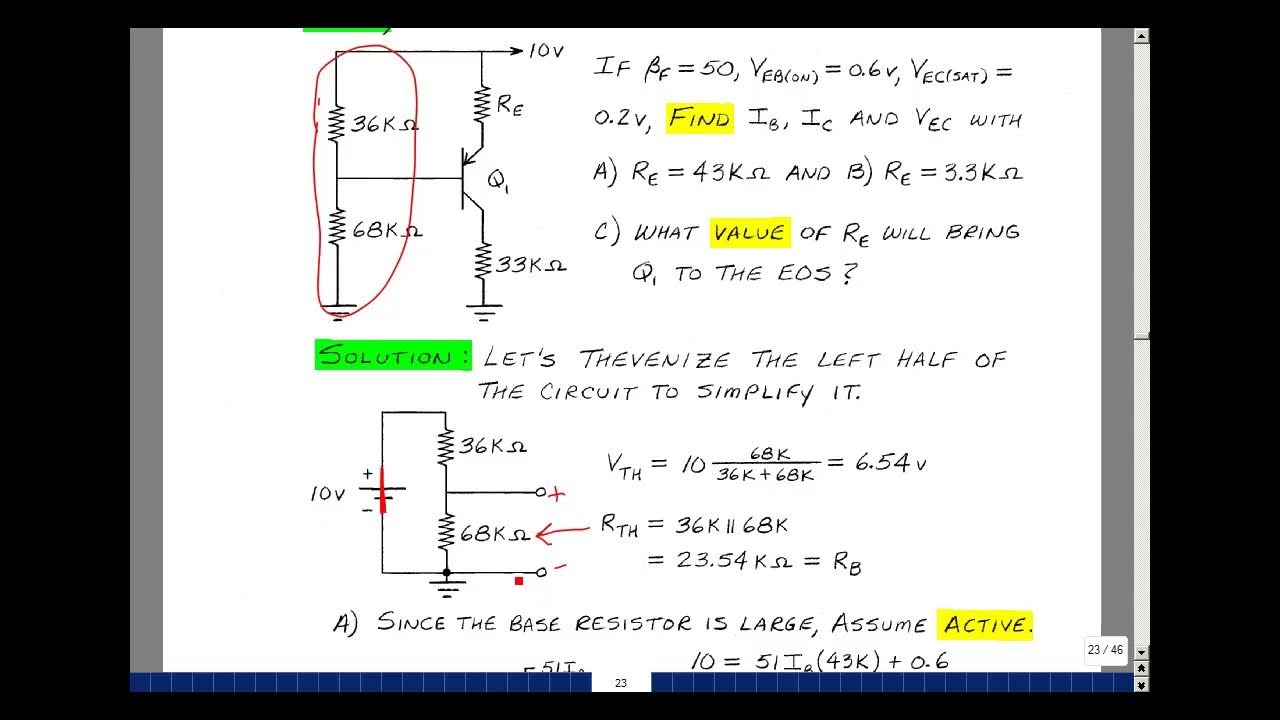 10V
RE
36KΩ
Q1
68KΩ
33KΩ
IF βF = 50, VEB(ON) = 0.6V, VEC(SAT) =
0.2V, FIND IB, IC AND VEC WITH
A) RE = 43KΩ AND B) RE = 3.3KΩ
C) WHAT VALUE OF RE WILL BRING
Q1 TO THE EOS?
SOLUTION: LET'S THEVENIZE THE LEFT HALF OF
THE CIRCUIT TO SIMPLIFY IT.
36KΩ
+
10V
-
+
68KΩ
-
VTH = 10 68K / 36K+68K = 6.54V
RTH = 36K||68K
= 23.54KΩ = RB
A) SINCE THE BASE RESISTOR IS LARGE, ASSUME ACTIVE.
10 = 51IB(43K) + 0.6
23 / 46
23